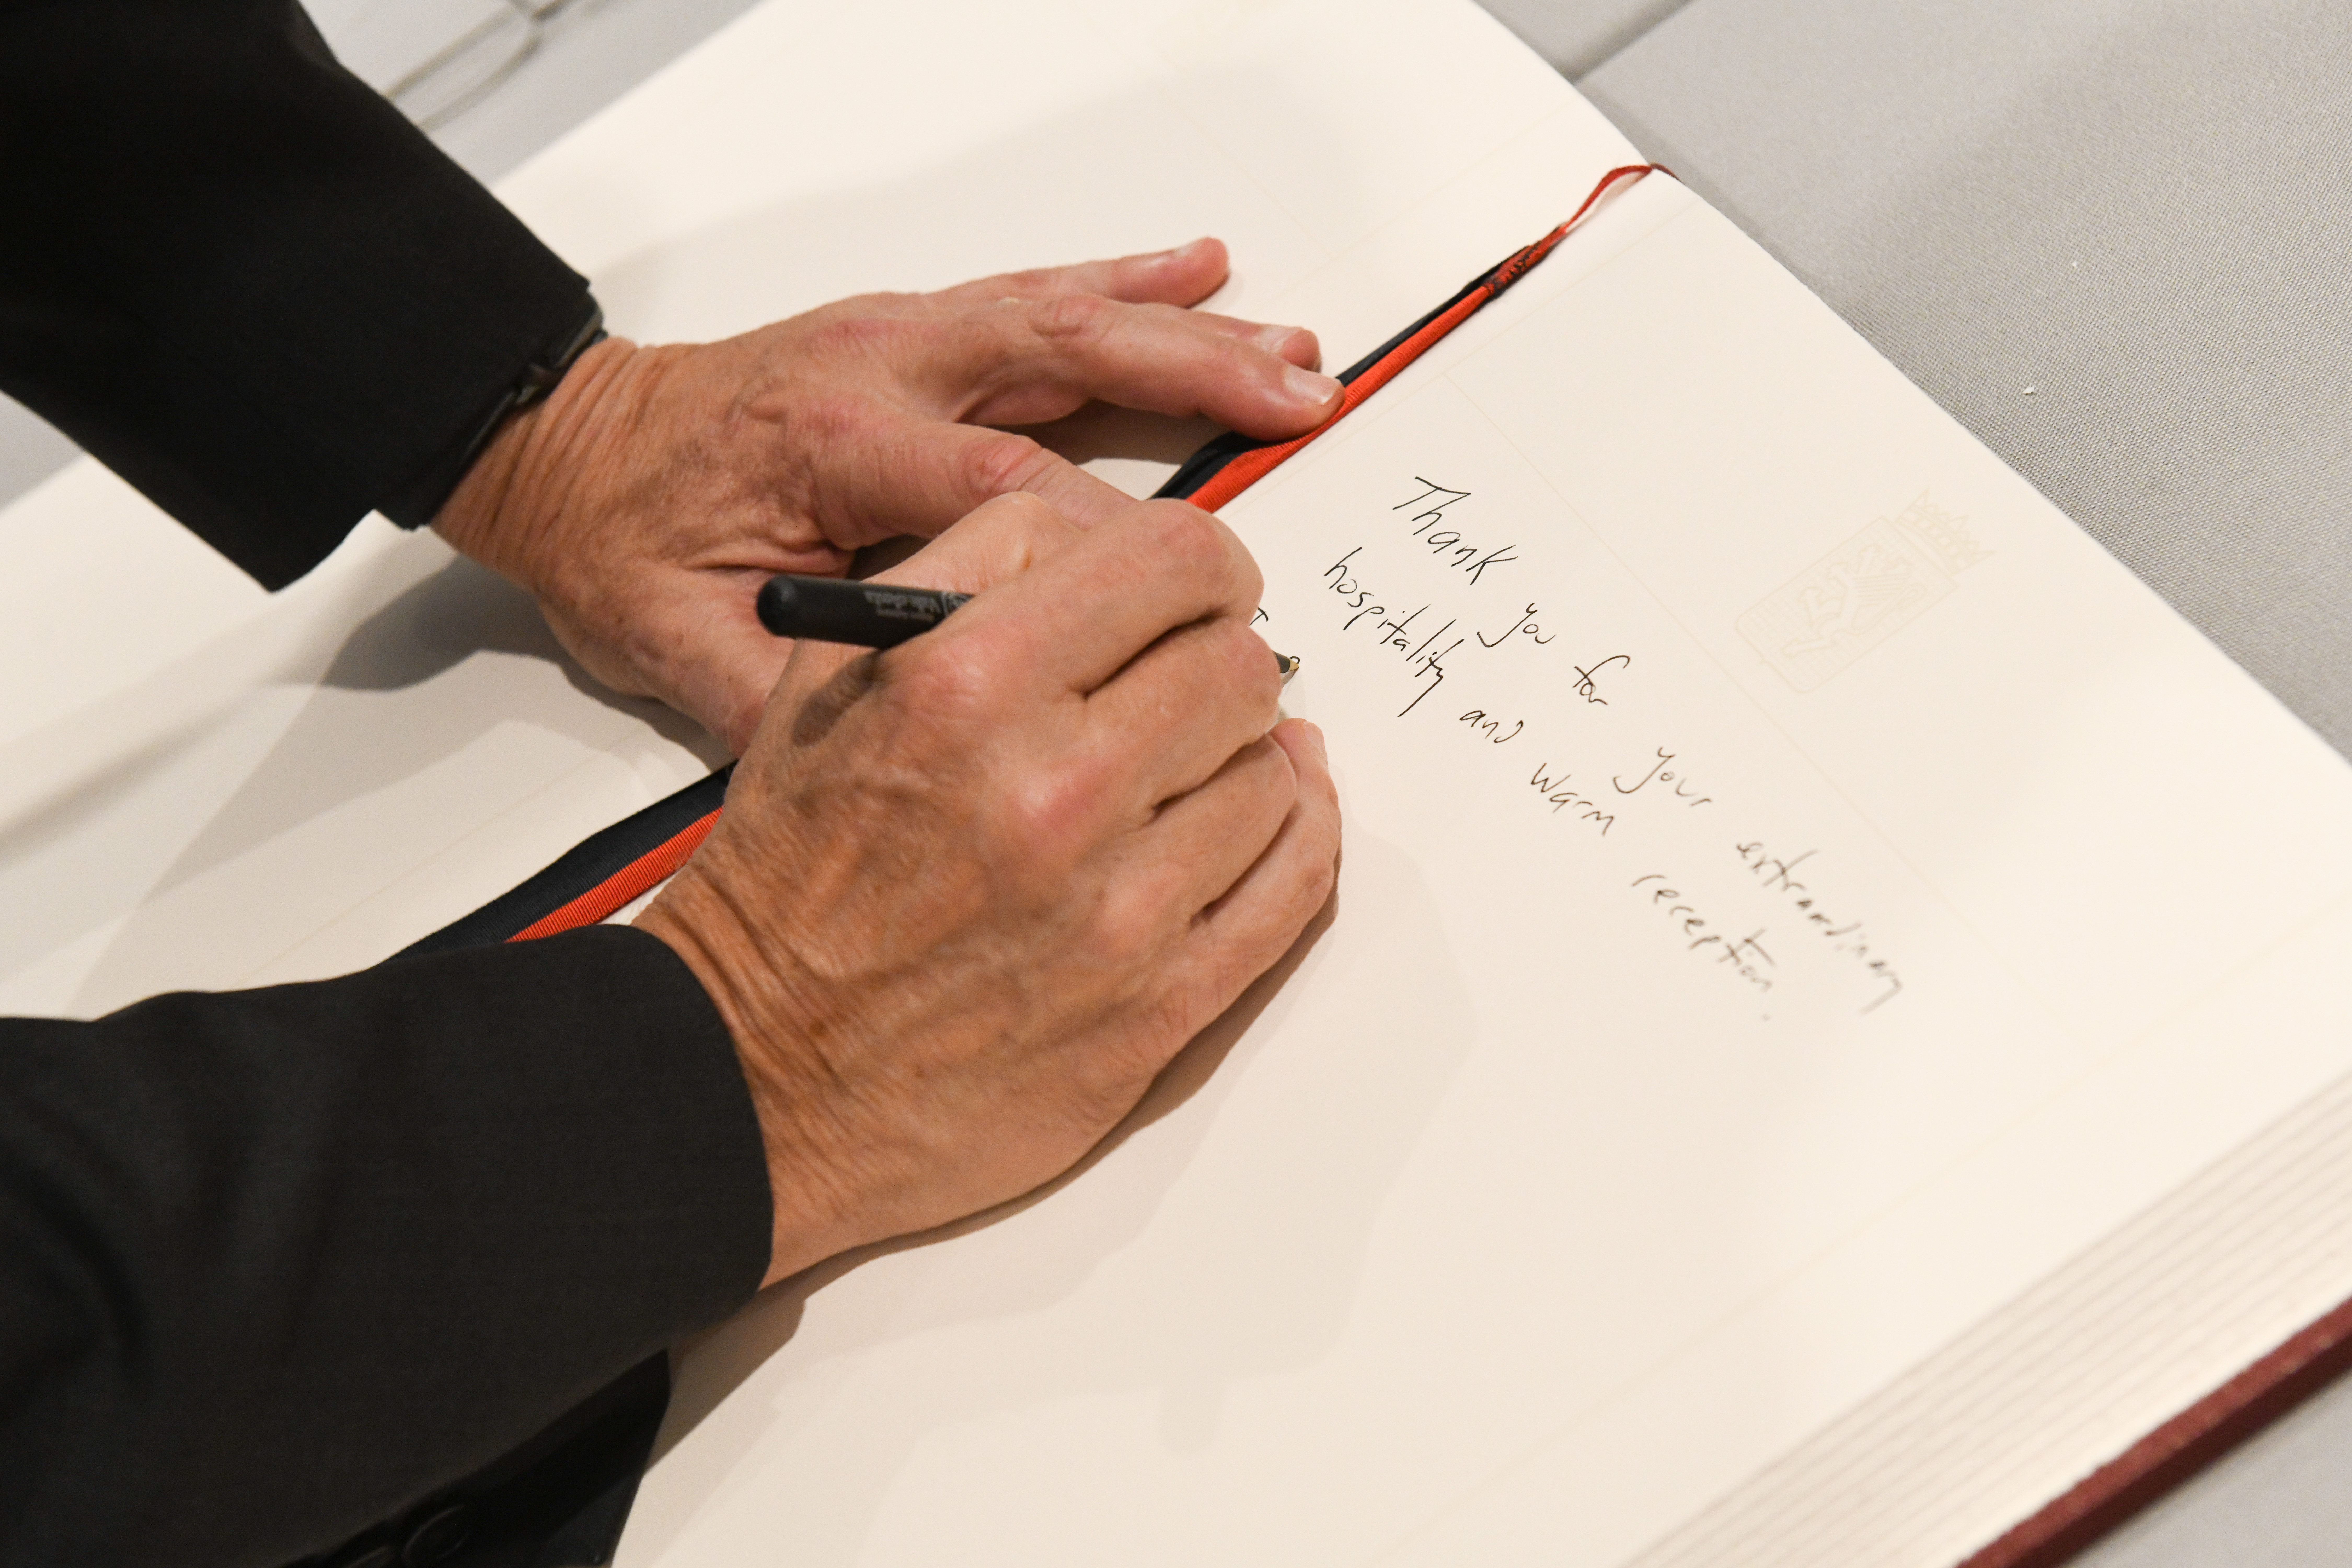 Thank you for your extraordinary
hospitality and warm reception.